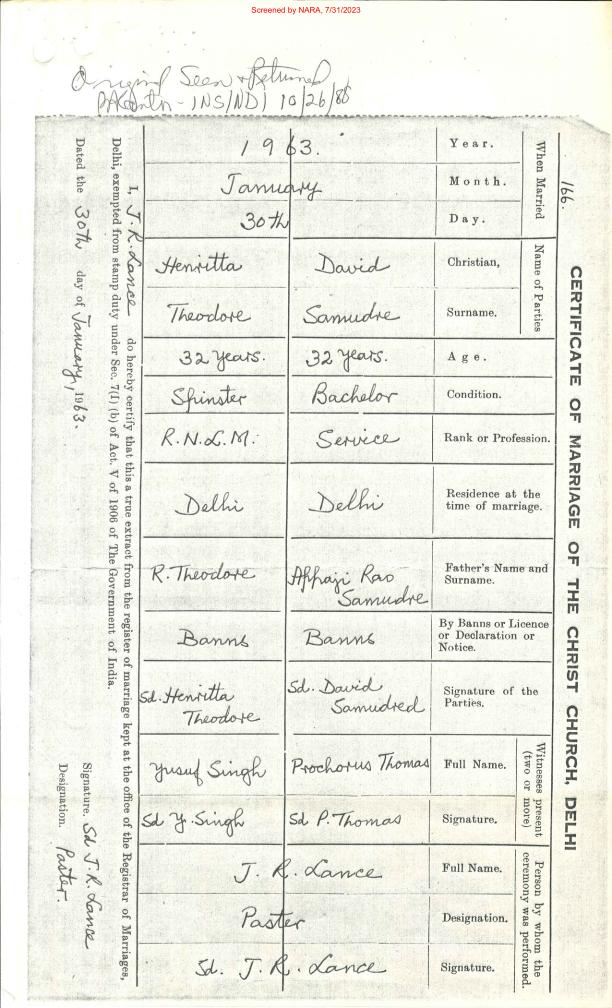 Screened by NARA, 7/31/2023
Original Seen & Returned
INS/NDI 10/26/88
166.
CERTIFICATE OF MARRIAGE OF THE CHRIST CHURCH, DELHI
When Married
Year.
1963.
Month.
January
Day.
30th
Name of Parties
Christian,
David
Henritta
Surname.
Samudre
Theodore
Age.
32 years.
32 years.
Condition.
Bachelor
Spinster
Rank or Profession.
Service
R.N.&.M.
Residence at the
time of marriage.
Delhi
Delhi
Father's Name and
Surname.
Appaji Rao
Samudre
R. Theodore
By Banns or Licence
or Declaration or
Notice.
Banns
Banns
Signature of the
Parties.
Sd. David
Samudred
Sd. Henritta
Theodore
Witnesses present
(two or
more)
Full Name.
Prochorus Thomas
Yusuf Singh
Signature.
Sd P. Thomas
Sd Y. Singh
Person by whom the
ceremony was performed.
Full Name.
J. R. Lance
Designation.
Paster
Signature.
Sd. J. R. Lance
I, J. R. Lance do hereby certify that this a true extract from the register of marriage kept at the office of the Registrar of Marriages,
Delhi, exempted from stamp duty under Sec. 7(1) (b) of Act. V of 1906 of The Government of India.
Dated the 30th day of January, 1963.
Signature. Sd J. R. Lance
Designation. Paster.